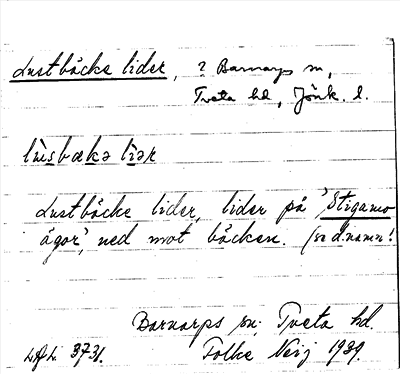 Lustbäcke lider, ? Barnarps sn,
Tveta hd, Jönk. l.
lùsbækə lìər
Lustbäcke lider, lider på 'Stigamo
ägor', ned mot bäcken. (se d. namn!
Barnarps sn. Tveta hd.
3731. Folke Neij 1939.